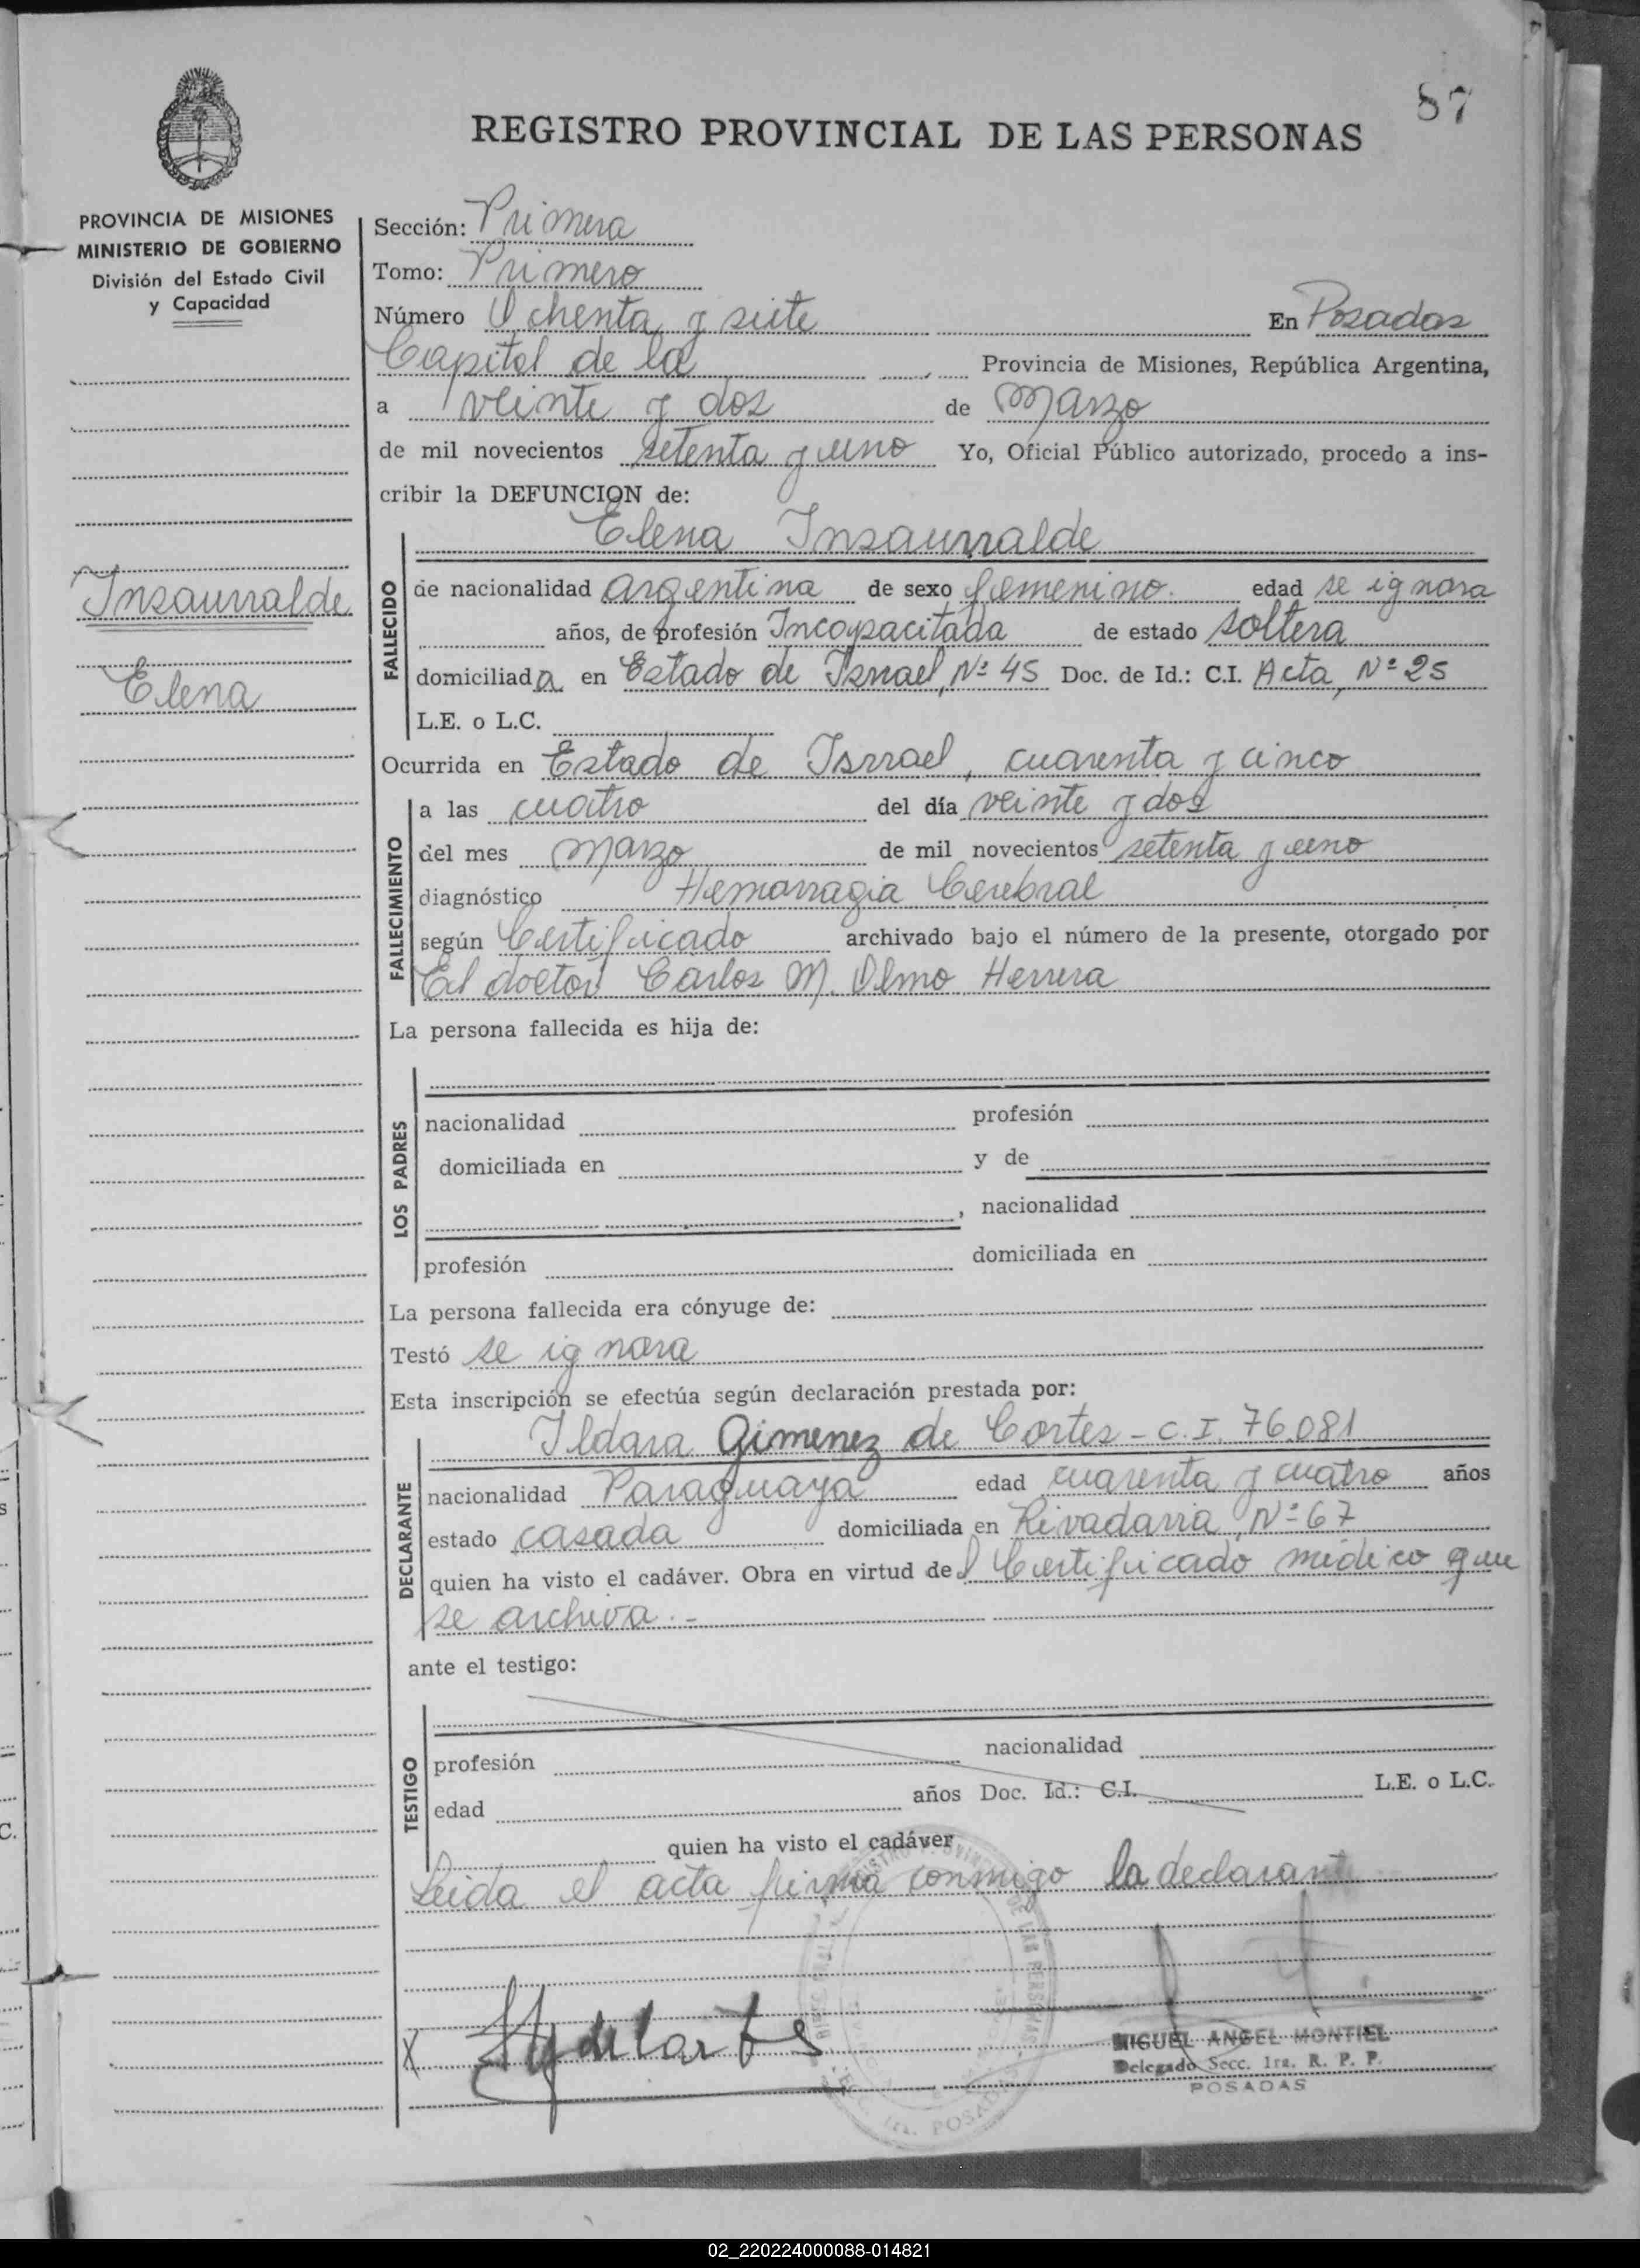 87
REGISTRO PROVINCIAL DE LAS PERSONAS
PROVINCIA DE MISIONES
MINISTERIO DE GOBIERNO
División del Estado Civil
y Capacidad
Insaurralde
Elena
Sección: Primera
Tomo: Primero
Número Ochenta y siete En Posadas
Capital de la Provincia de Misiones, República Argentina,
a veinte y dos de Marzo
de mil novecientos setenta y uno Yo, Oficial Público autorizado, procedo a ins-
cribir la DEFUNCION de:
Elena Insaurralde
FALLECIDO
de nacionalidad argentina de sexo femenino. edad se ignora
años, de profesión Incapacitada de estado soltera
domiciliada en Estado de Isrrael, Nº 45 Doc. de Id.: C.I. Acta, Nº 25
L.E. o L.C.
Ocurrida en Estado de Isrrael, cuarenta y cinco
FALLECIMIENTO
a las cuatro del día veinte y dos
del mes Marzo de mil novecientos setenta y uno
diagnóstico Hemorragia Cerebral
según Certificado archivado bajo el número de la presente, otorgado por
El doctor Carlos M. Olmo Herrera
La persona fallecida es hija de:
LOS PADRES
nacionalidad profesión
domiciliada en y de
, nacionalidad
profesión domiciliada en
La persona fallecida era cónyuge de:
Testó se ignora
Esta inscripción se efectúa según declaración prestada por:
Ildara Gimenez de Cortes - C.I. 76.081
DECLARANTE
nacionalidad Paraguaya edad cuarenta y cuatro años
estado casada domiciliada en Rivadavia, Nº 67
quien ha visto el cadáver. Obra en virtud del Certificado médico que
se archiva.-
ante el testigo:
TESTIGO
profesión nacionalidad
edad años Doc. Id.: C.I. L.E. o L.C.
quien ha visto el cadáver
Leida el acta firma conmigo la declarante
X
MIGUEL ANGEL MONTIEL
Delegado Secc. 1ra. R. P. P.
POSADAS
02_220224000088-014821